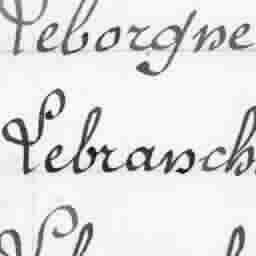 Leborgne
Lebranch